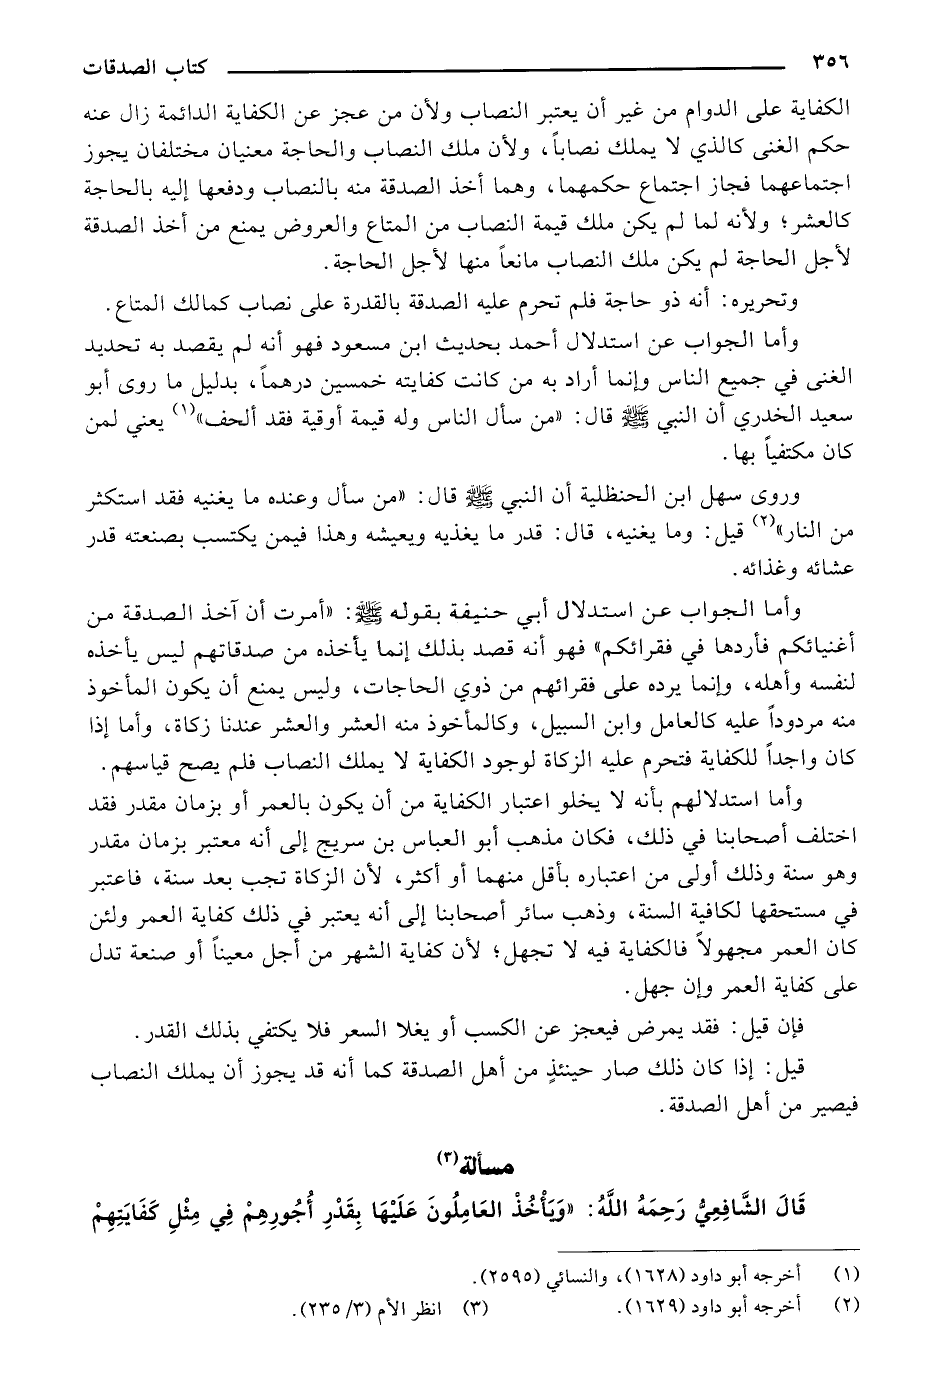 ٣٥٦ كتاب الصدقات
الكفاية على الدوام من غير أن يعتبر النصاب ولأن من عجز عن الكفاية الدائمة زال عنه
حكم الغنى كالذي لا يملك نصاباً، ولأن ملك النصاب والحاجة معنيان مختلفان يجوز
اجتماعهما فجاز اجتماع حكمهما، وهما أخذ الصدقة منه بالنصاب ودفعها إليه بالحاجة
كالعشر؛ ولأنه لما لم يكن ملك قيمة النصاب من المتاع والعروض يمنع من أخذ الصدقة
لأجل الحاجة لم يكن ملك النصاب مانعاً منها لأجل الحاجة.
وتحريره: أنه ذو حاجة فلم تحرم عليه الصدقة بالقدرة على نصاب كمالك المتاع.
وأما الجواب عن استدلال أحمد بحديث ابن مسعود فهو أنه لم يقصد به تحديد
الغنى في جميع الناس وإنما أراد به من كانت كفايته خمسين درهماً، بدليل ما روى أبو
سعيد الخدري أن النبي ﷺ قال: «من سأل الناس وله قيمة أوقية فقد ألحف»(١) يعني لمن
كان مكتفياً بها.
وروى سهل ابن الحنظلية أن النبي ﷺ قال: «من سأل وعنده ما يغنيه فقد استكثر
من النار»(٢) قيل: وما يغنيه، قال: قدر ما يغذيه ويعيشه وهذا فيمن يكتسب بصنعته قدر
عشائه وغذائه.
وأما الجواب عن استدلال أبي حنيفة بقوله ﷺ: «أمرت أن آخذ الصدقة من
أغنيائكم فأردها في فقرائكم» فهو أنه قصد بذلك إنما يأخذه من صدقاتهم ليس يأخذه
لنفسه وأهله، وإنما يرده على فقرائهم من ذوي الحاجات، وليس يمنع أن يكون المأخوذ
منه مردوداً عليه كالعامل وابن السبيل، وكالمأخوذ منه العشر والعشر عندنا زكاة، وأما إذا
كان واجداً للكفاية فتحرم عليه الزكاة لوجود الكفاية لا يملك النصاب فلم يصح قياسهم.
وأما استدلالهم بأنه لا يخلو اعتبار الكفاية من أن يكون بالعمر أو بزمان مقدر فقد
اختلف أصحابنا في ذلك، فكان مذهب أبو العباس بن سريج إلى أنه معتبر بزمان مقدر
وهو سنة وذلك أولى من اعتباره بأقل منهما أو أكثر، لأن الزكاة تجب بعد سنة، فاعتبر
في مستحقها لكافية السنة، وذهب سائر أصحابنا إلى أنه يعتبر في ذلك كفاية العمر ولئن
كان العمر مجهولاً فالكفاية فيه لا تجهل؛ لأن كفاية الشهر من أجل معيناً أو صنعة تدل
على كفاية العمر وإن جهل.
فإن قيل: فقد يمرض فيعجز عن الكسب أو يغلا السعر فلا يكتفي بذلك القدر.
قيل: إذا كان ذلك صار حينئذٍ من أهل الصدقة كما أنه قد يجوز أن يملك النصاب
فيصير من أهل الصدقة.
مسألة(٣)
قَالَ الشَّافِعِيُّ رَحِمَهُ اللَّهُ: «وَيَأْخُذْ العَامِلُونَ عَلَيْهَا بِقَدْرِ أُجُورِهِمْ فِي مِثْلِ كَفَايَتِهِمْ
(١) أخرجه أبو داود (١٦٢٨)، والنسائي (٢٥٩٥).
(٢) أخرجه أبو داود (١٦٢٩). (٣) انظر الأم (٣/ ٢٣٥).